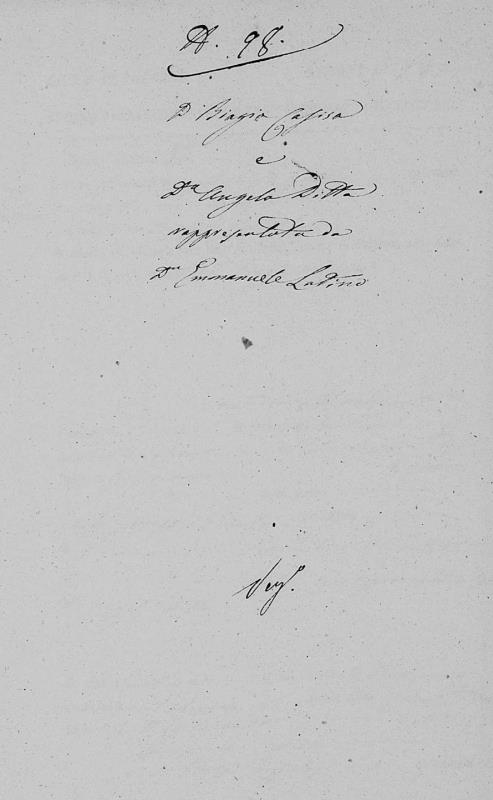 N. 98.
D. Biagio Casisa
e
Da. Angela Ditta
rappresentata da
Dn. Emmanuele Ladino